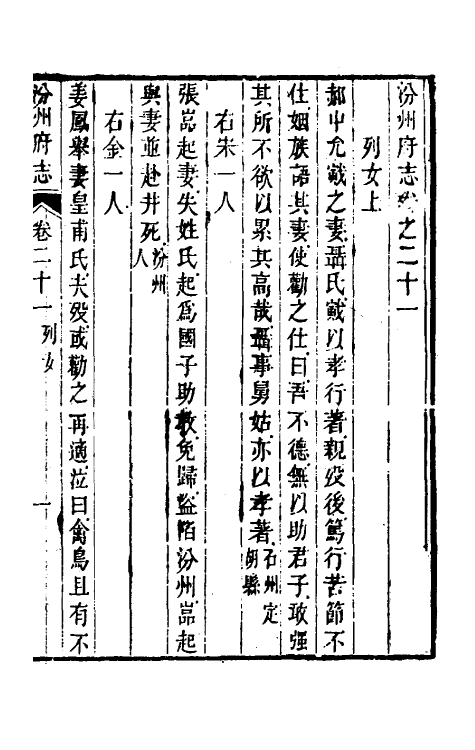 汾州府志卷之二十一
列女上
郝中允戭之妻聶氏戭以孝行著親歿後篤行苦節不
仕姻族語其妻使勸之仕曰吾不德無以助君子敢强
其所不欲以累其高哉聶事舅姑亦以孝著石州定胡縣
右宋一人
張嵓起妻失姓氏起爲國子助教免歸盜陷汾州嵓起
與妻並赴井死汾州人
右金一人
姜鳳舉妻皇甫氏夫歿或勸之再適泣曰禽鳥且有不
汾州府志
卷二十一 列女
一